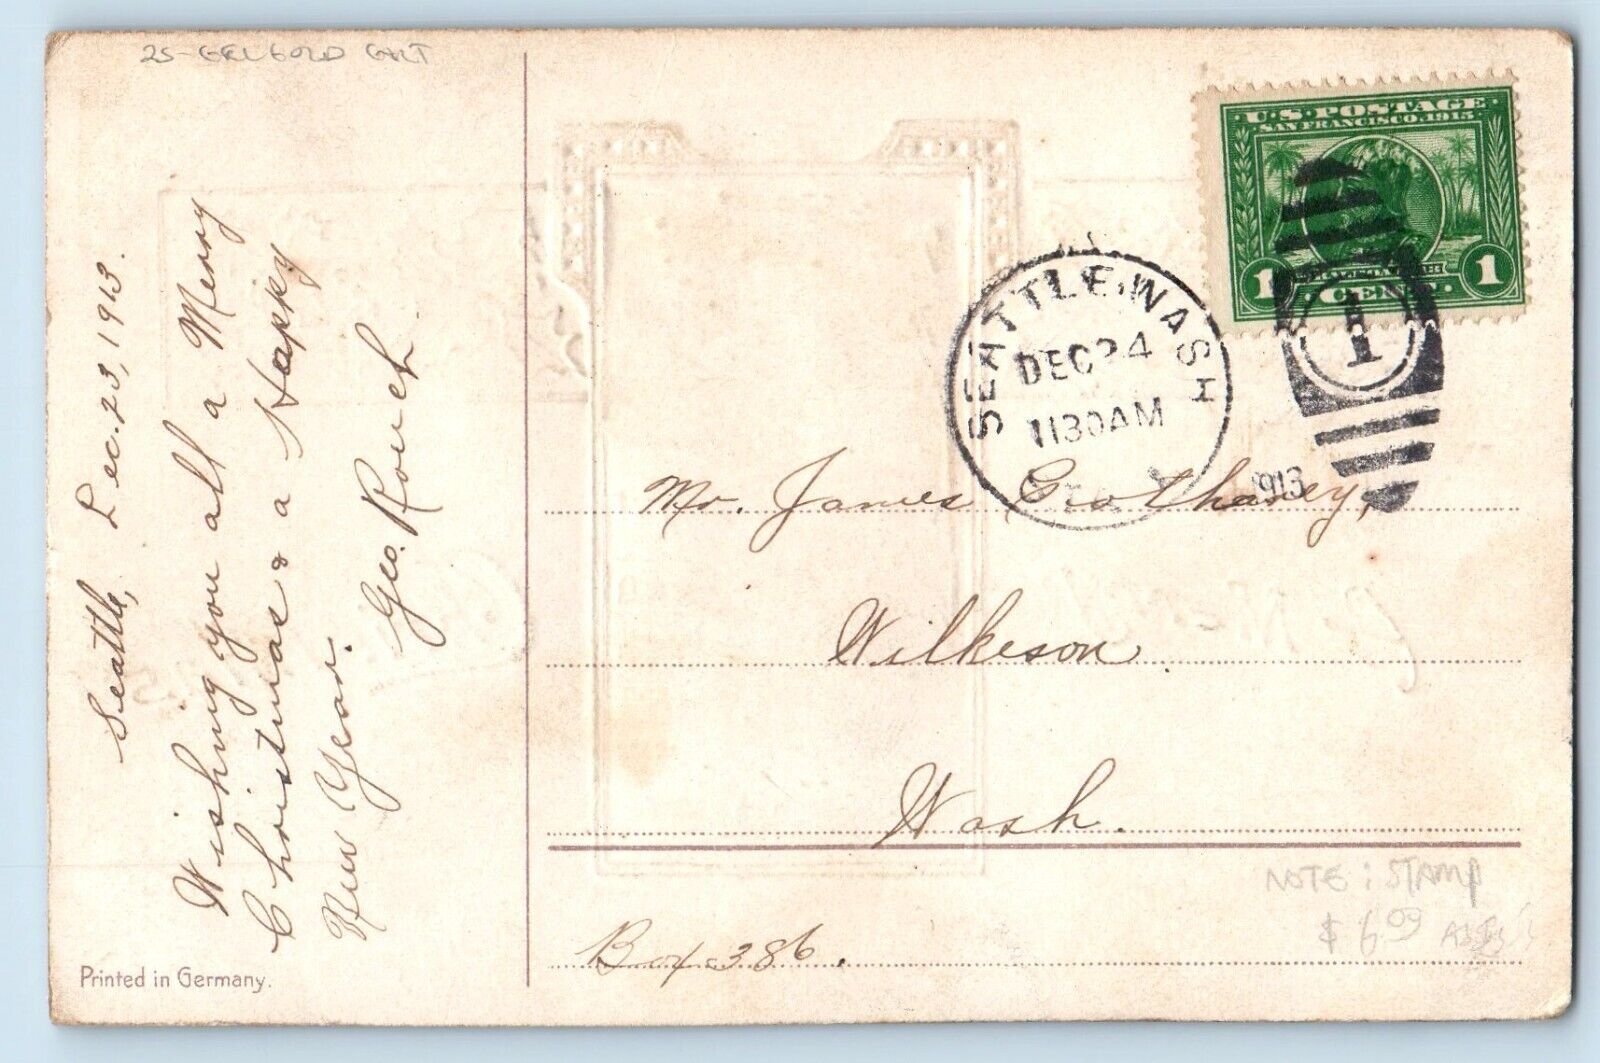 Seattle, Dec. 23, 1913.
Wishing you all a Merry
Christmas & a Happy
New Year.
Geo. Rouch
Printed in Germany.
U.S. POSTAGE
SAN FRANCISCO, 1915
1 CENT 1
SEATTLE, WASH
DEC 24
1130AM
1913
1
Mr. James
Wilkeson
Wash.
Box 386.
NOTE: STAMP
$6.09